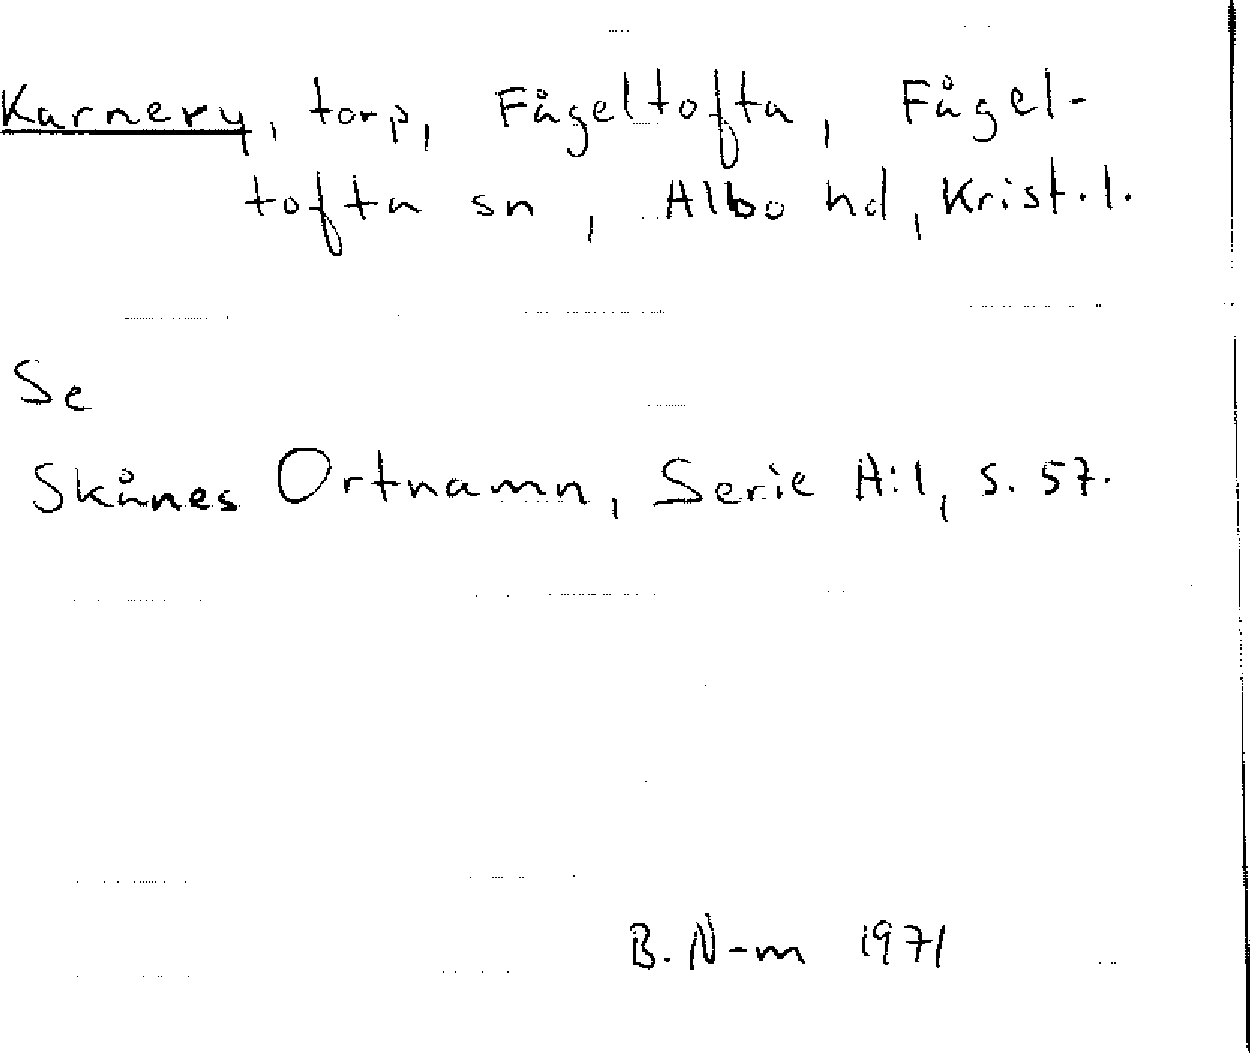 Karnery, torp, Fågeltofta, Fågel-
tofta sn, Albo hd, Krist.l.
Se
Skånes Ortnamn, Serie A:1, s. 57.
B. N-m 1971